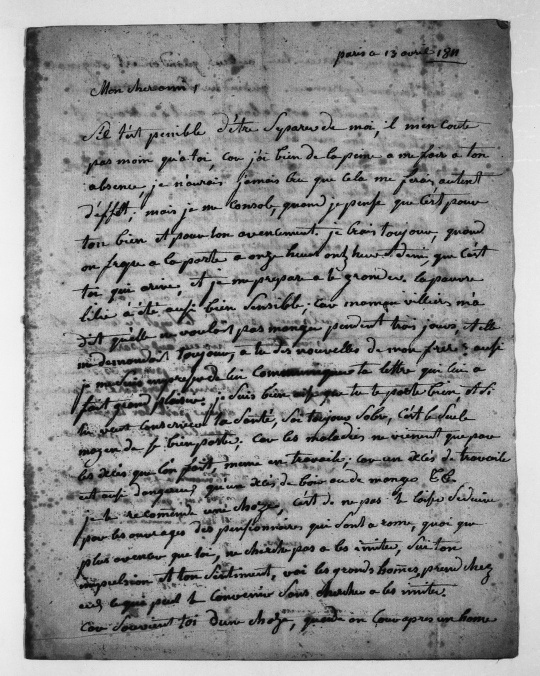 paris ce 13 avril 1811
Mon cher ami,
S'il t'est penible d'être Separé de moi, il m'en coute
pas moin qu'a toi car j'ai bien de la peine a me fair a ton
absence, je n'aurais jamais cru que cela me ferais autent
d'effet; mais je me console, quand je pense que c'est pour
ton bien et pour ton avencement. je crois toujour, quand
on frape a la porte a onze heur ont heur et demi, que c'est
toi qui arive, et je me prepare a te gronder. la pauvre
a été ausi bien Sensible; car maman villiers m'a
dit qu'elle ne voulait pas manger pendent trois jours, et elle
me demandait toujour, a tu des nouvelles de mon frere: ausi
je me suis de lui ta lettre qui lui a
fait grand plaisir. je Suis bien aise que tu te porte bien, et Si
tu veut conserver ta Santé, Soi toujour Sobre, c'est le Seule
moyen de Se bien porter; car les maladies ne viennent que par
les exés que l'on fait, meme en travaile; car un exés de travaile
est ausi dangereux qu'un exés de boir ou de manger &&.
je te recomende une choze, c'est de ne pas te laisse Seduire
par les ouvrages des pensionnaires qui Sont a rome, quoi que
plus avencer que toi, ne cherche pas a les imiter, Sui ton
impulsion et ton Sentiment, voi les grands homes, prend chez
eux ce qui peut te convenir Sans chercher a les imiter.
Car Souvient toi d'une choze, quand on cour apres un home